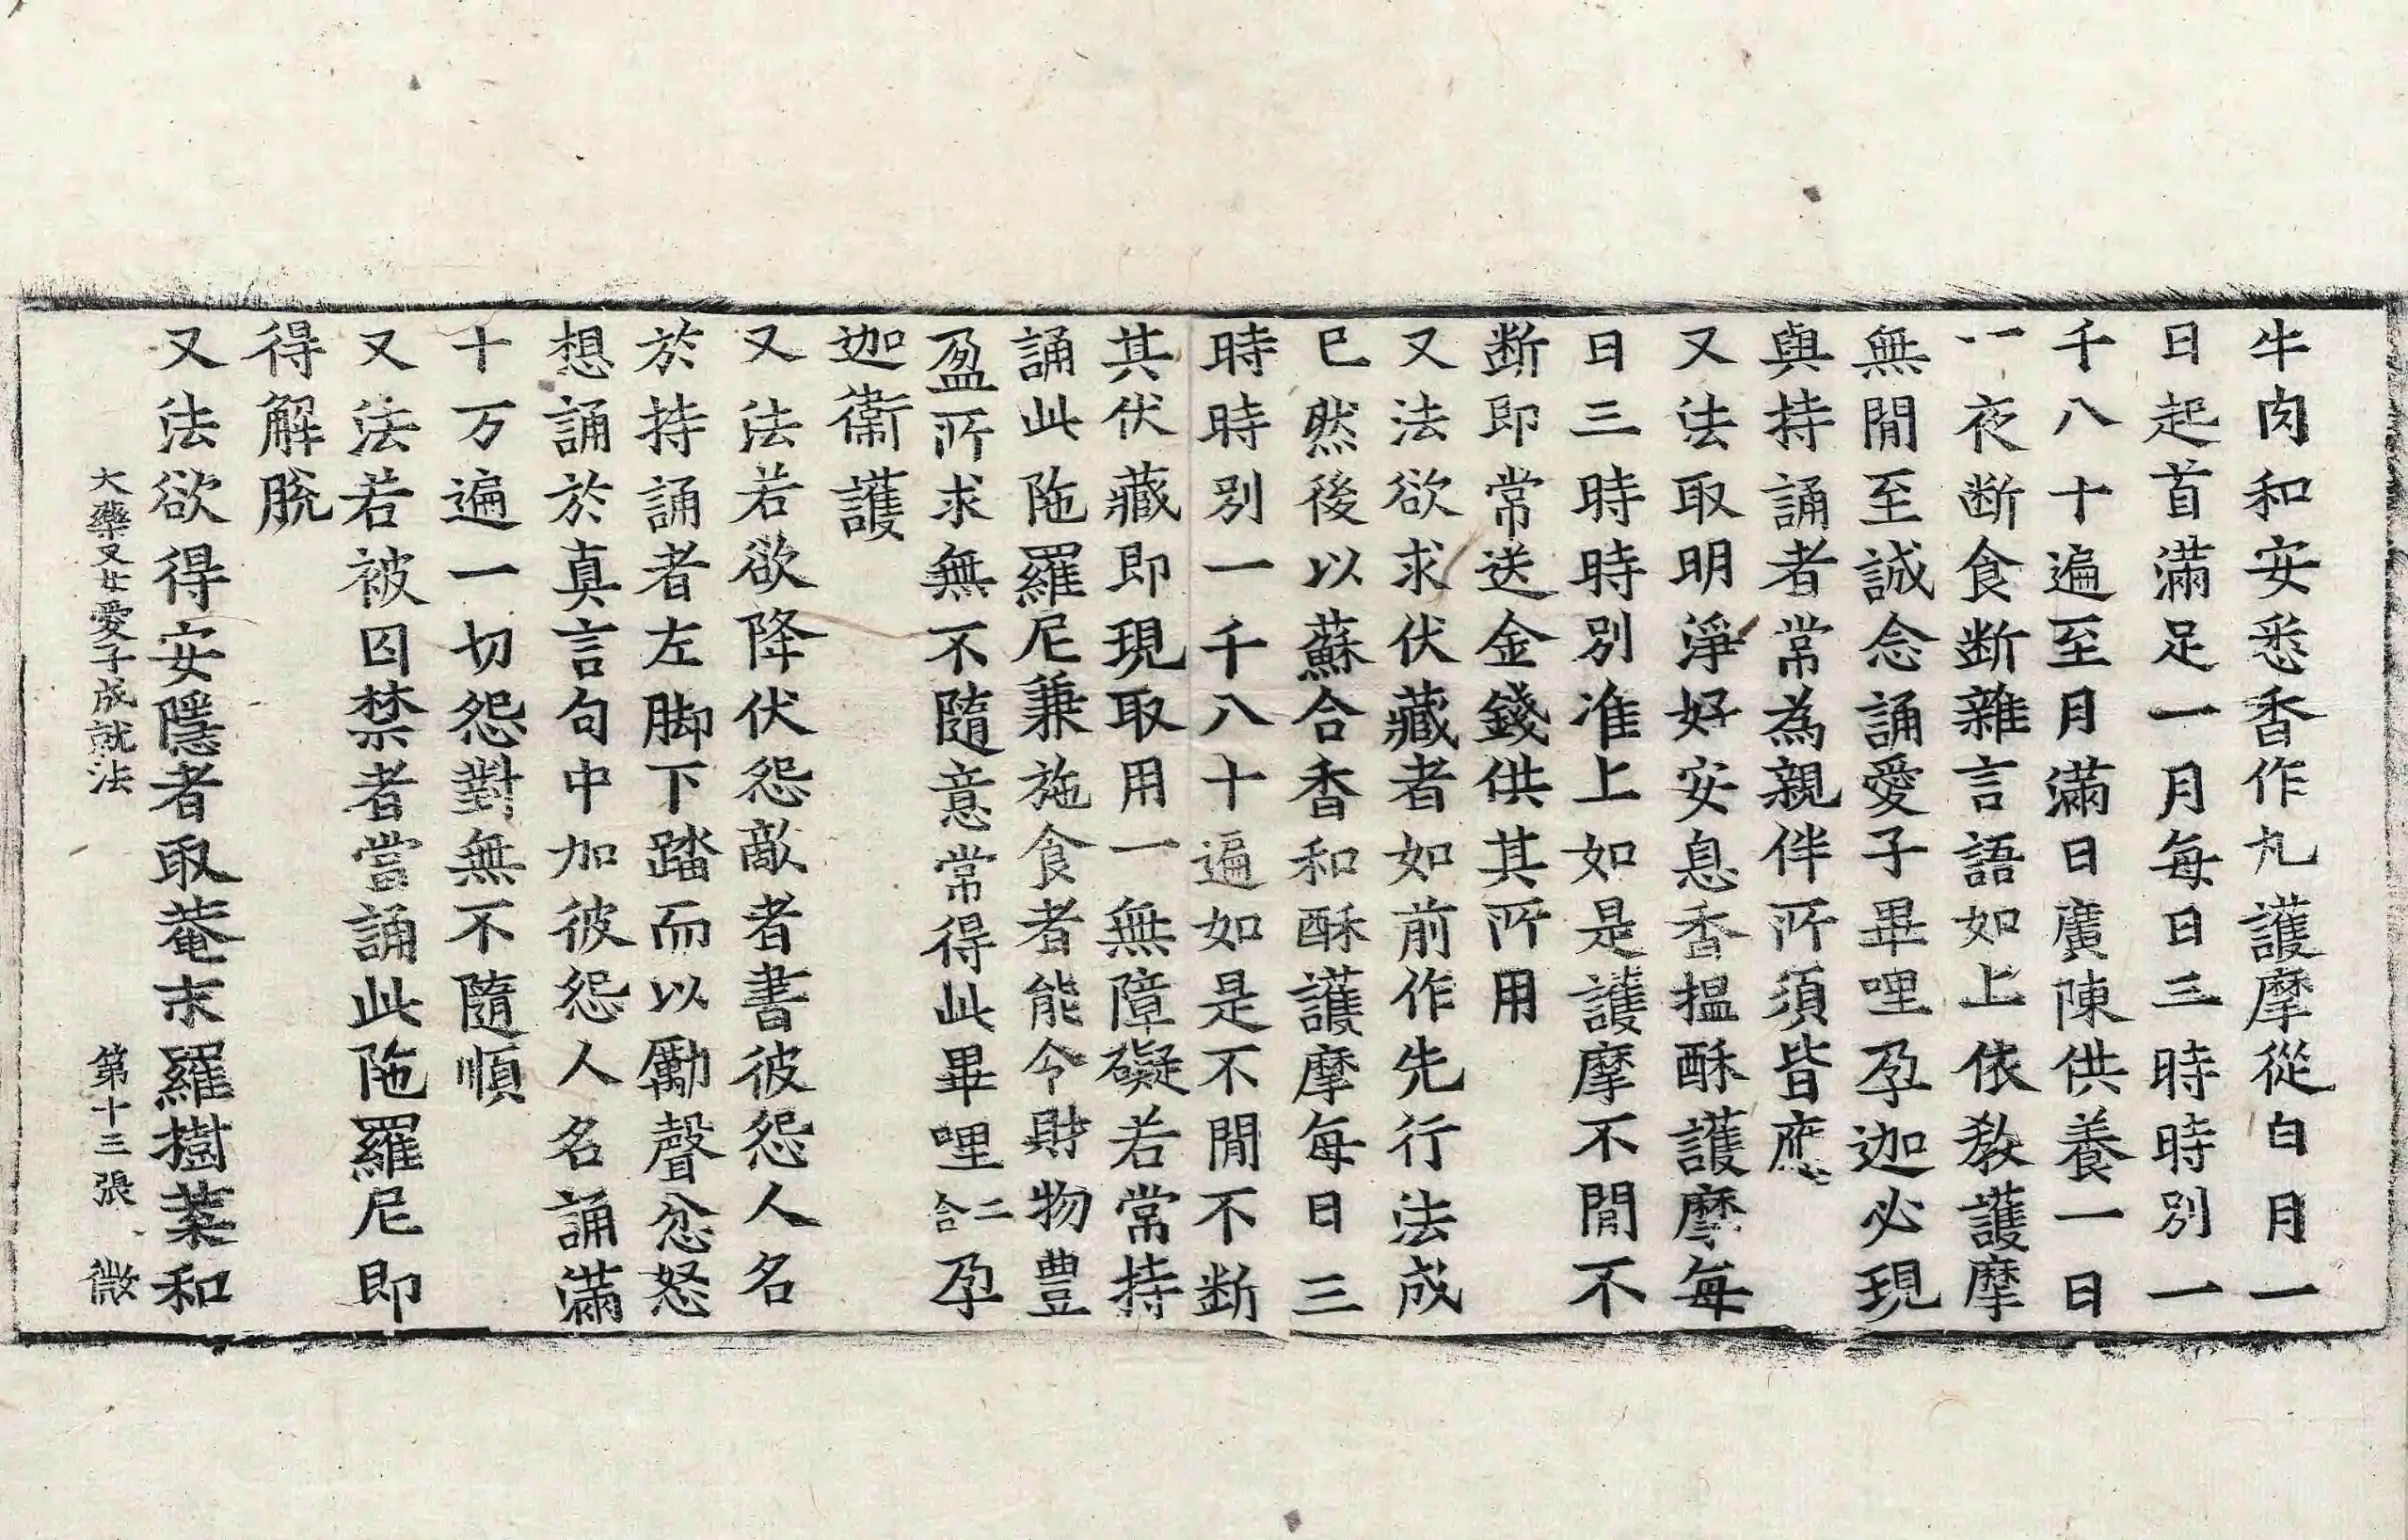 牛肉和安悉香作丸護摩從白月一
日起首滿足一月每日三時時別一
千八十遍至月滿日廣陳供養一日
一夜断食断雜言語如上依教護摩
無閒至誠念誦愛子畢哩孕迦必現
與持誦者常為親伴所須皆應
又法取明淨好安息香揾酥護摩每
日三時時別准上如是護摩不閒不
断即常送金錢供其所用
又法欲求伏藏者如前作先行法成
已然後以蘇合香和酥護摩每日三
時時別一千八十遍如是不閒不断
其伏藏即現取用一無障礙若常持
誦此陁羅尼兼施食者能令財物豊
盈所求無不隨意常得此畢哩二合孕
迦衛護
又法若欲降伏怨敵者書彼怨人名
於持誦者左脚下踏而以勵聲忿怒
想誦於真言句中加彼怨人名誦滿
十万遍一切怨對無不隨順
又法若被囚禁者當誦此陁羅尼即
得解脫
又法欲得安隱者取菴末羅樹葉和
大藥叉女愛子成就法 第十三張 微